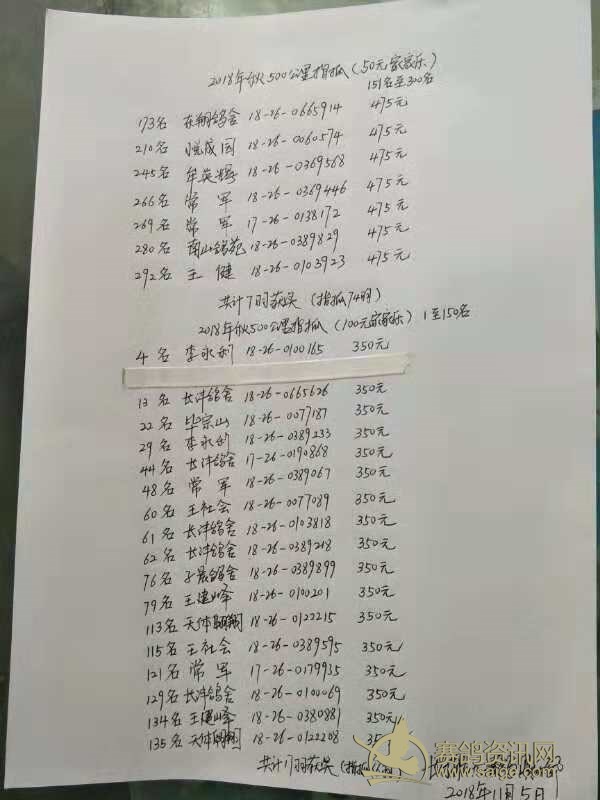 2018年秋500公里指孤(50元家家乐)
151名至300名
173名 东翔鸽舍 18-26-0665914 475元
210名 成国 18-26-0060574 475元
245名 牟英 18-26-0369568 475元
266名 常军 18-26-0369446 475元
269名 常军 17-26-0138172 475元
280名 南山鸽苑 18-26-0389829 475元
292名 王健 18-26-0103923 475元
共计7羽获奖(指孤74羽)
2018年秋500公里指孤(100元家家乐) 1至150名
4名 李永利 18-26-0100165 350元
13名 长沣鸽舍 18-26-0665626 350元
22名 毕宗山 18-26-0077187 350元
29名 李永利 18-26-0389233 350元
44名 长沣鸽舍 17-26-0190868 350元
48名 常军 18-26-0389067 350元
60名 王社会 18-26-0077089 350元
61名 长沣鸽舍 18-26-0103818 350元
62名 长沣鸽舍 18-26-0389218 350元
76名 子晨鸽舍 18-26-0389899 350元
79名 王建峰 18-26-0100201 350元
113名 天体翱翔 18-26-0122215 350元
115名 王社会 18-26-0389595 350元
121名 常军 17-26-0179935 350元
129名 长沣鸽舍 18-26-0100069 350元
134名 王建峰 18-26-0380881 350元
135名 天体翱翔 18-26-0122208
共计17羽获奖
赛鸽资讯网
www.saige.com
2018年11月5日